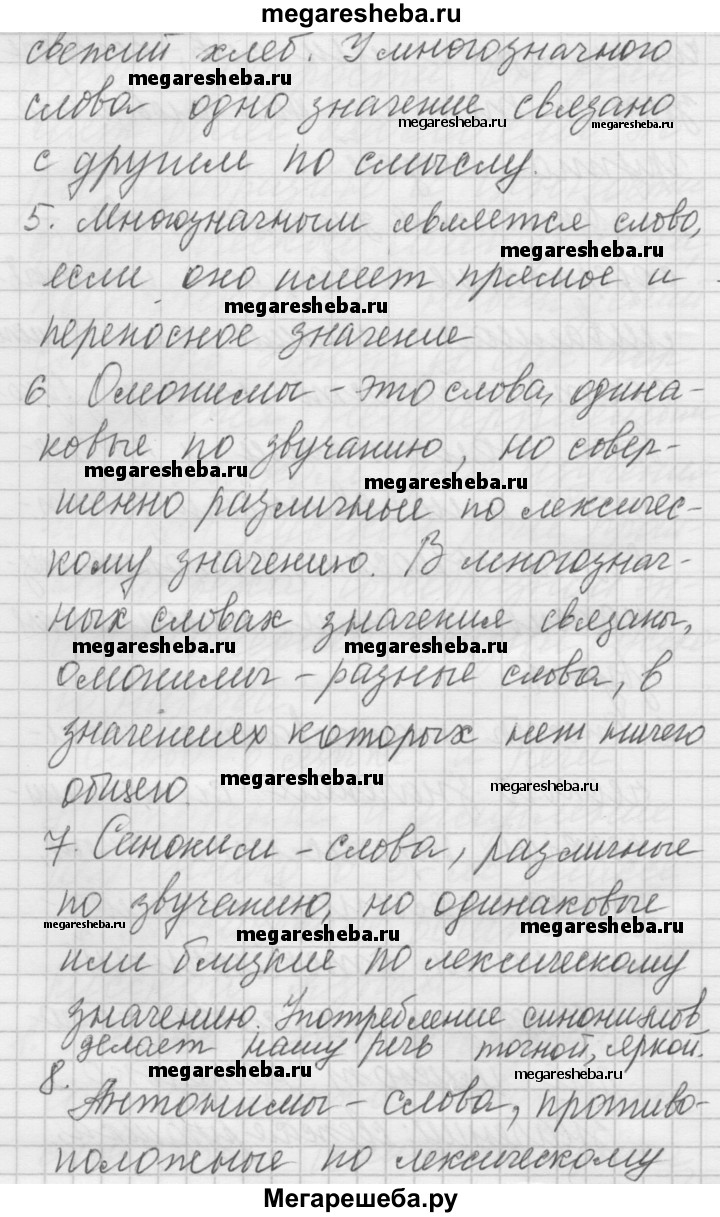 megaresheba.ru
свежий хлеб. У многозначного
megaresheba.ru
слова одно значение связано
megaresheba.ru
megaresheba.ru
с другим по смыслу.
5. Многозначным является слово,
megaresheba.ru
если оно имеет прямое и
megaresheba.ru
переносное значение
6. Омонимы - это слова, одина-
ковые по звучанию, но совер-
megaresheba.ru
megaresheba.ru
шенно различные по лексичес-
кому значению. В многознач-
ных словах значения связаны,
megaresheba.ru
megaresheba.ru
омонимы - разные слова, в
значениях которых нет ничего
megaresheba.ru
megaresheba.ru
общего.
7. Синоним - слова, различные
по звучанию, но одинаковые
megaresheba.ru
megaresheba.ru
megaresheba.ru
или близкие по лексическому
значению. Употребление синонимов
делает нашу речь точной, яркой.
megaresheba.ru
megaresheba.ru
8. Антонимы - слова, противо-
положные по лексическому
Мегарешеба.ру